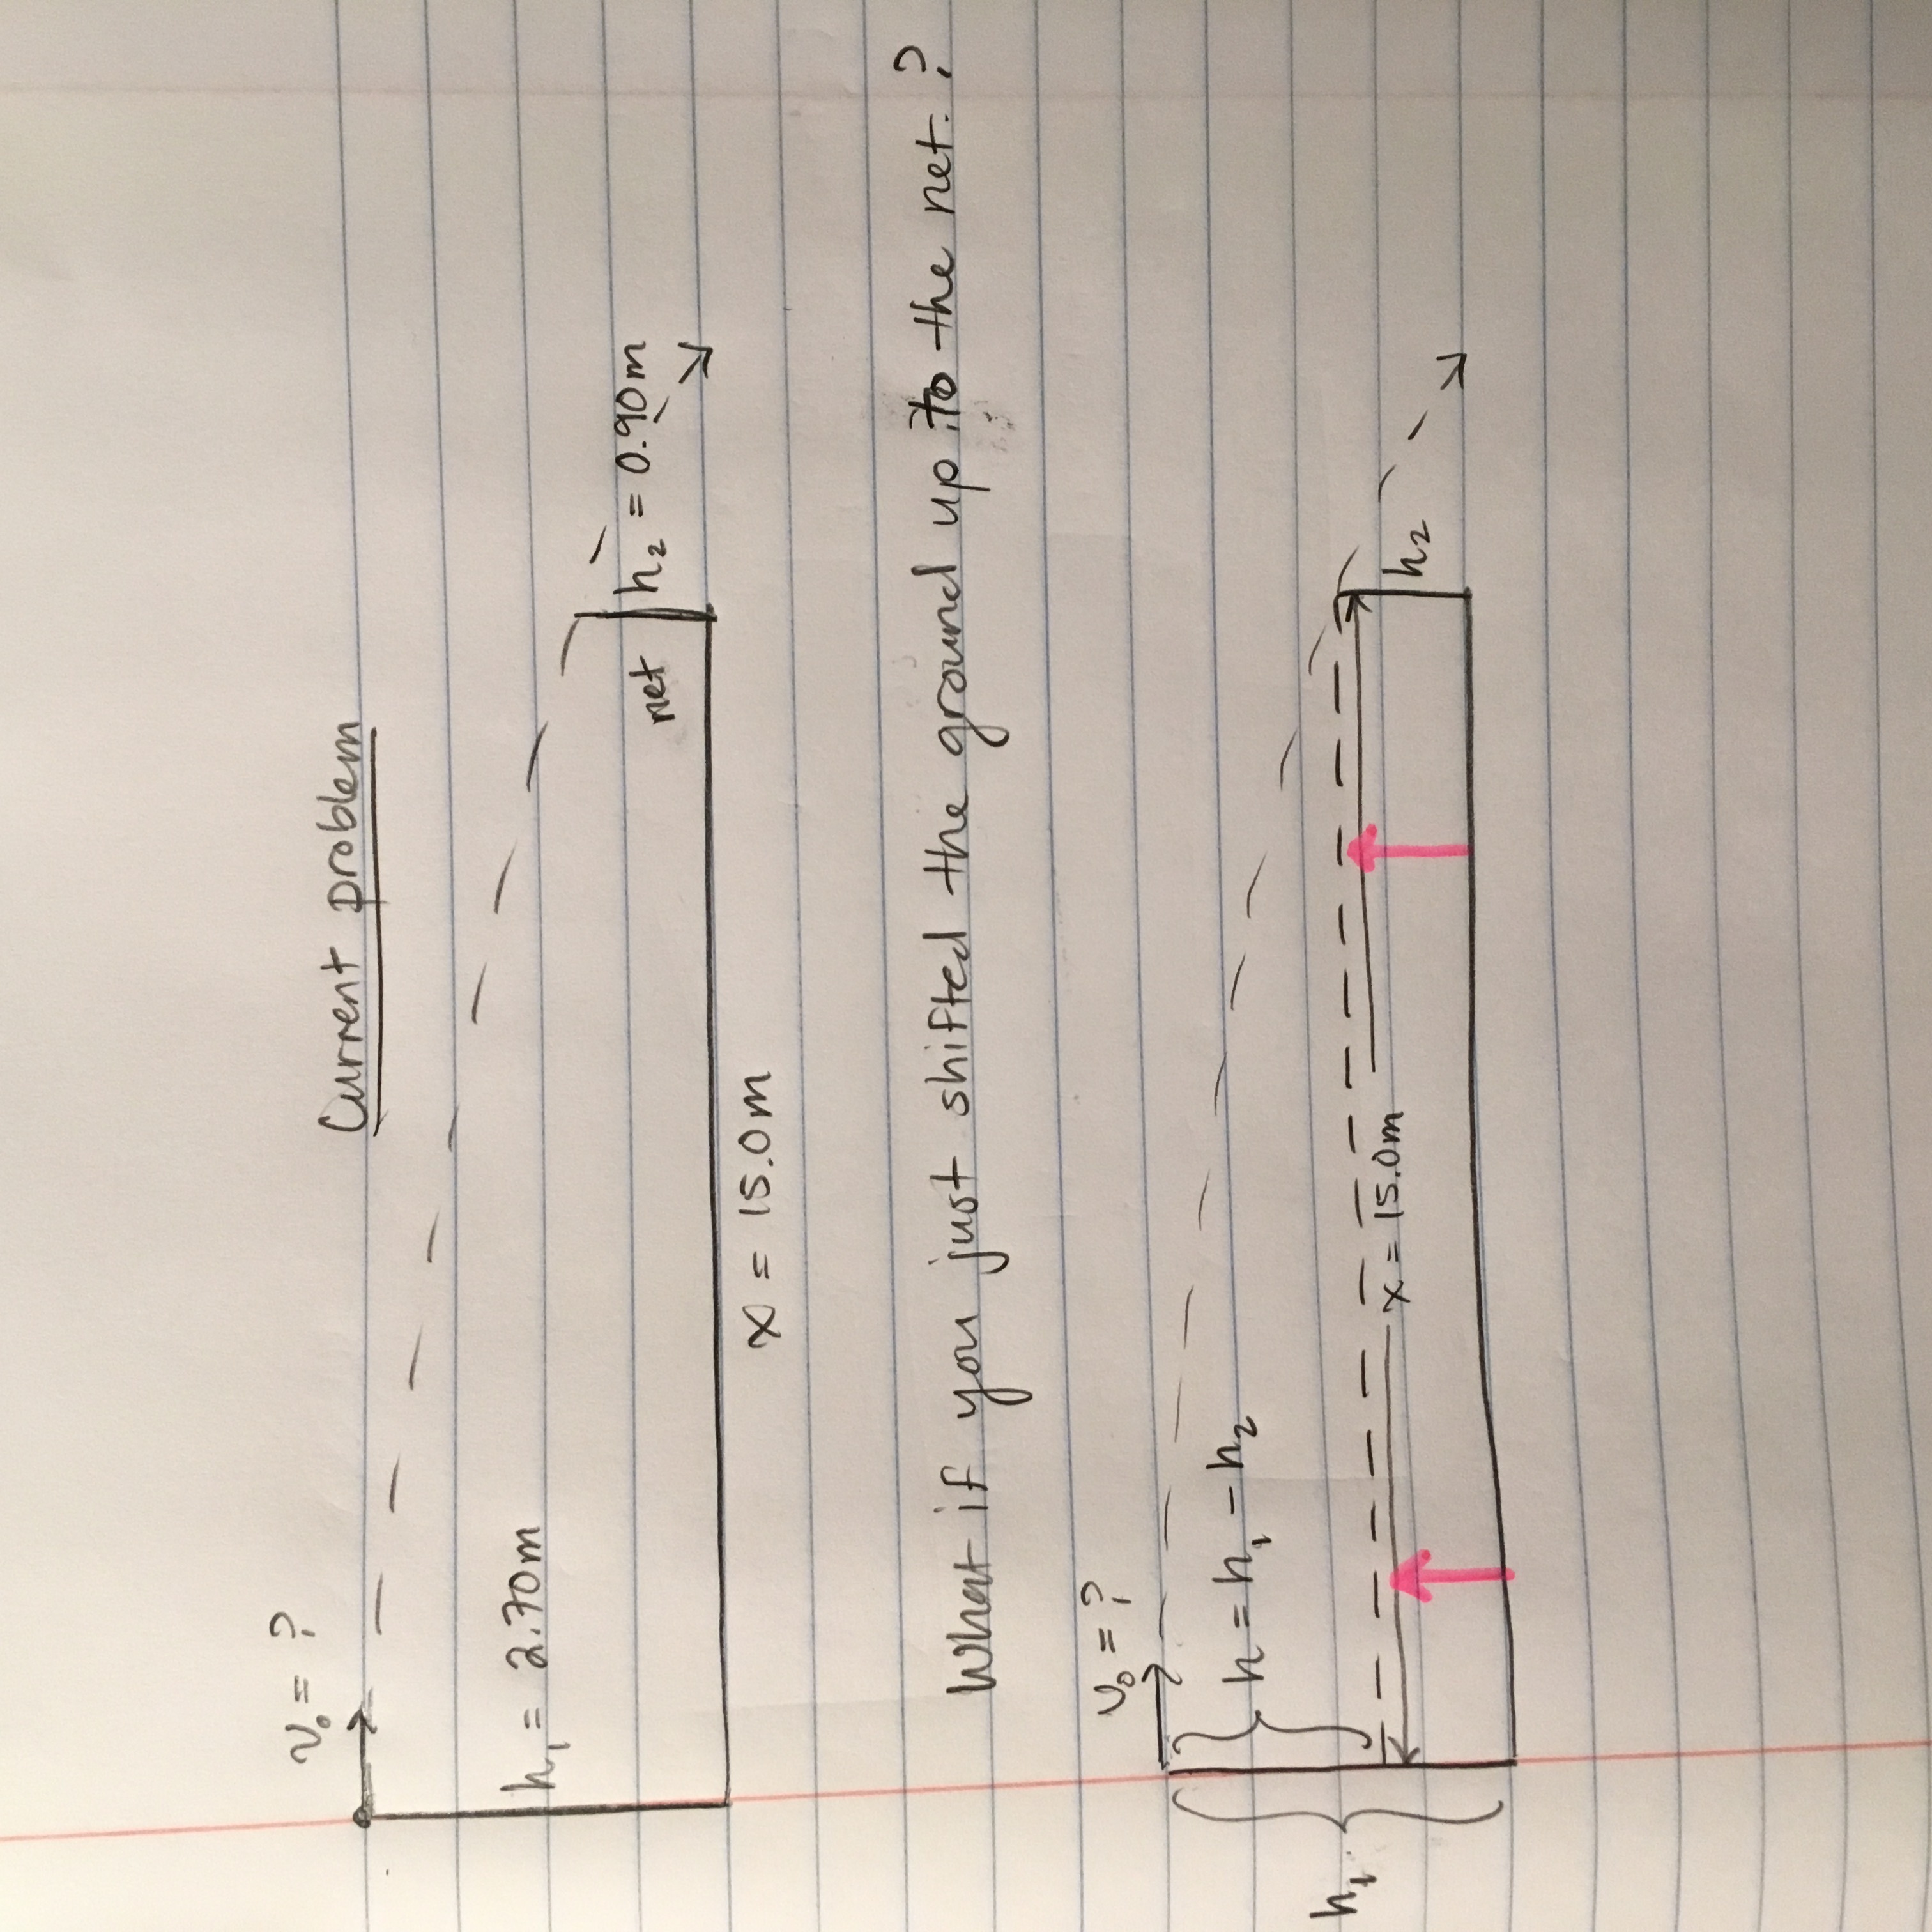 Current problem
v₀ = ?
h₁ = 2.70m
net
h₂ = 0.90m
x = 15.0m
What if you just shifted the ground up to the net?
v₀ = ?
h₁
h = h₁ - h₂
x = 15.0m
h₂